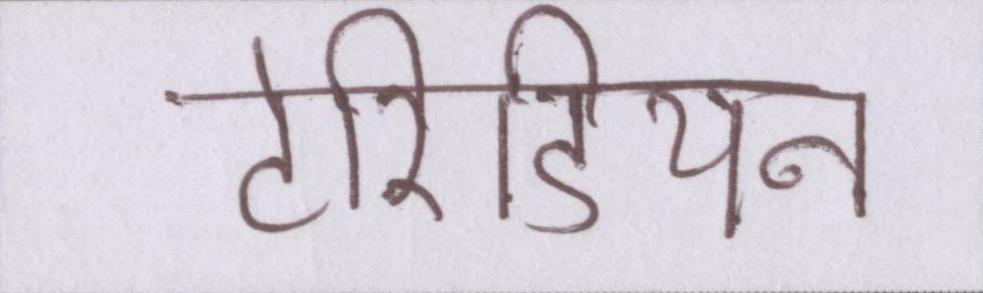 टेरिडियन